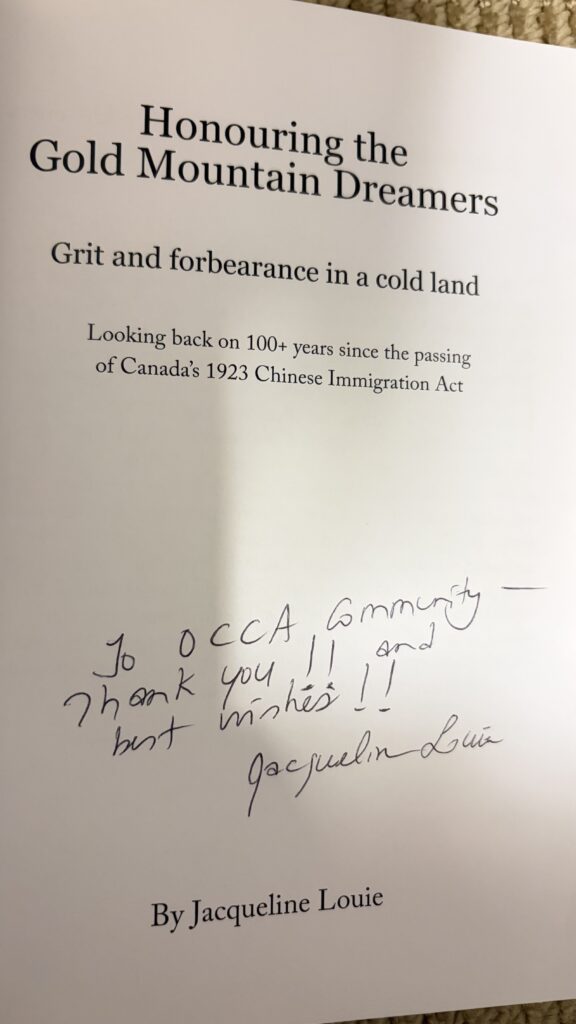 Honouring the
Gold Mountain Dreamers
Grit and forbearance in a cold land
Looking back on 100+ years since the passing
of Canada's 1923 Chinese Immigration Act
To OCCA Community —
Thank you !! and
best wishes !!
Jacqueline Louie
By Jacqueline Louie